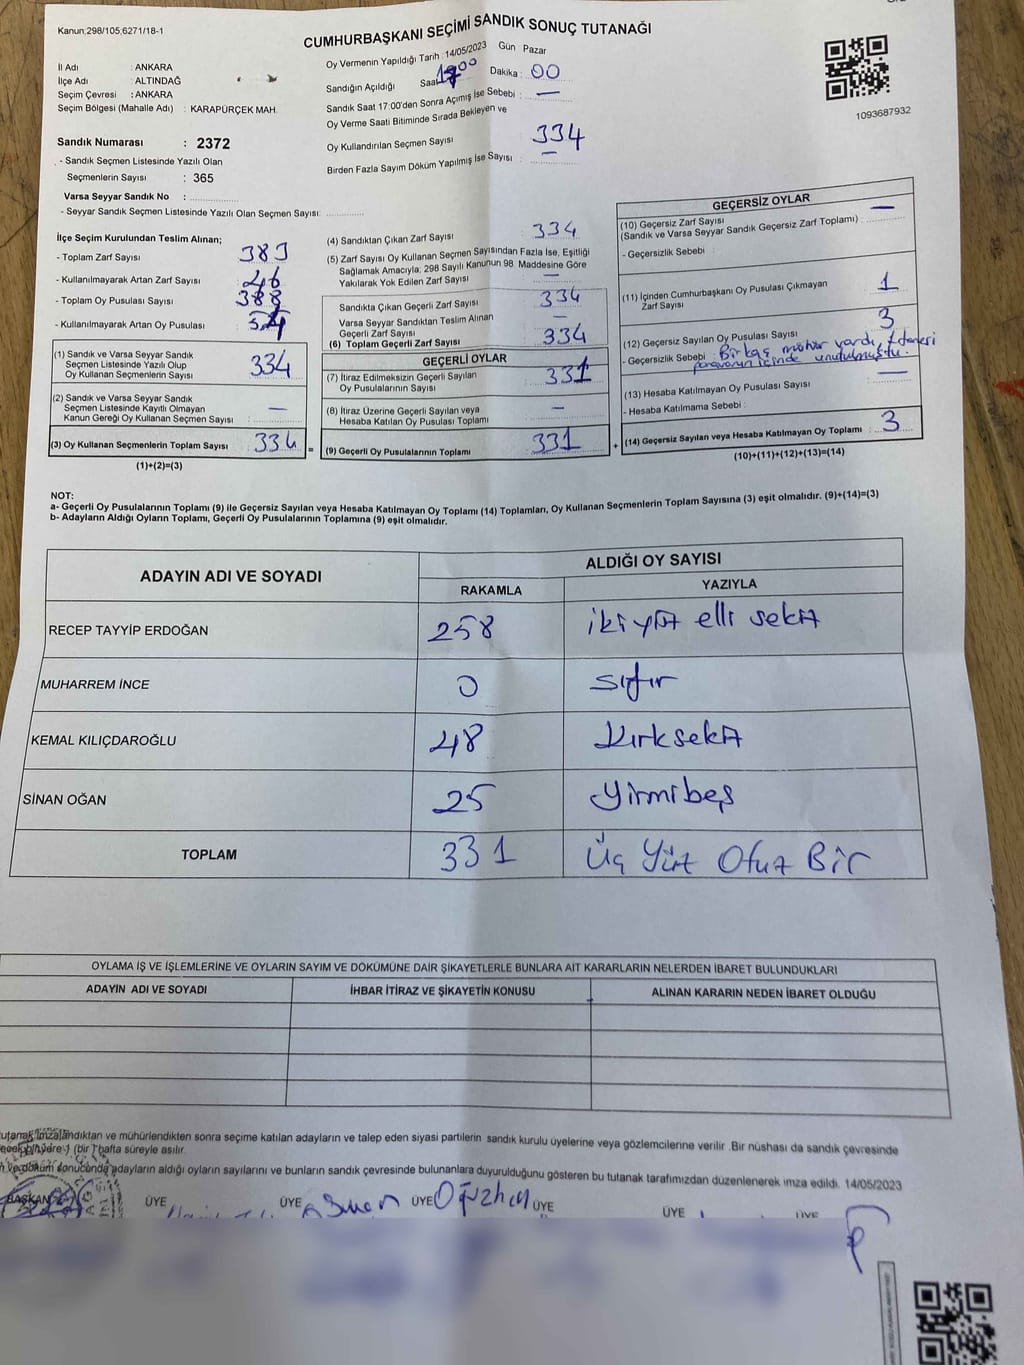 Kanun,298/105,6271/18-1
CUMHURBAŞKANI SEÇİMİ SANDIK SONUÇ TUTANAĞI
İl Adı : ANKARA
İlçe Adı : ALTINDAĞ
Seçim Çevresi : ANKARA
Seçim Bölgesi (Mahalle Adı) : KARAPÜRÇEK MAH.
Sandık Numarası : 2372
- Sandık Seçmen Listesinde Yazılı Olan
Seçmenlerin Sayısı : 365
Varsa Seyyar Sandık No :
- Seyyar Sandık Seçmen Listesinde Yazılı Olan Seçmen Sayısı:
Oy Vermenin Yapıldığı Tarih : 14/05/2023 Gün Pazar
Sandığın Açıldığı Saat Dakika : 00
Sandık Saat 17:00'den Sonra Açımış İse Sebebi : —
Oy Verme Saati Bitiminde Sırada Bekleyen ve
Oy Kullandırılan Seçmen Sayısı 334
Birden Fazla Sayım Döküm Yapılmış İse Sayısı : —
1093687932
İlçe Seçim Kurulundan Teslim Alınan;
- Toplam Zarf Sayısı 383
- Kullanılmayarak Artan Zarf Sayısı 46
- Toplam Oy Pusulası Sayısı 388
- Kullanılmayarak Artan Oy Pusulası
(1) Sandık ve Varsa Seyyar Sandık
Seçmen Listesinde Yazılı Olup
Oy Kullanan Seçmenlerin Sayısı 334
(2) Sandık ve Varsa Seyyar Sandık
Seçmen Listesinde Kayıtlı Olmayan
Kanun Gereği Oy Kullanan Seçmen Sayısı : —
(3) Oy Kullanan Seçmenlerin Toplam Sayısı 334 =
(1)+(2)=(3)
(4) Sandıktan Çıkan Zarf Sayısı 334
(5) Zarf Sayısı Oy Kullanan Seçmen Sayısından Fazla İse, Eşitliği
Sağlamak Amacıyla; 298 Sayılı Kanunun 98. Maddesine Göre
Yakılarak Yok Edilen Zarf Sayısı —
Sandıkta Çıkan Geçerli Zarf Sayısı 334
Varsa Seyyar Sandıktan Teslim Alınan
Geçerli Zarf Sayısı —
(6) Toplam Geçerli Zarf Sayısı 334
GEÇERLİ OYLAR
(7) İtiraz Edilmeksizin Geçerli Sayılan
Oy Pusulalarının Sayısı 331
(8) İtiraz Üzerine Geçerli Sayılan veya
Hesaba Katılan Oy Pusulası Toplamı —
(9) Geçerli Oy Pusulalarının Toplamı 331 +
GEÇERSİZ OYLAR
(10) Geçersiz Zarf Sayısı —
(Sandık ve Varsa Seyyar Sandık Geçersiz Zarf Toplamı)
- Geçersizlik Sebebi :
(11) İçinden Cumhurbaşkanı Oy Pusulası Çıkmayan
Zarf Sayısı 1
(12) Geçersiz Sayılan Oy Pusulası Sayısı 3
- Geçersizlik Sebebi : Birkaç mühür vardı,
unutulmuştu.
(13) Hesaba Katılmayan Oy Pusulası Sayısı —
- Hesaba Katılmama Sebebi :
(14) Geçersiz Sayılan veya Hesaba Katılmayan Oy Toplamı : 3
(10)+(11)+(12)+(13)=(14)
NOT:
a- Geçerli Oy Pusulalarının Toplamı (9) ile Geçersiz Sayılan veya Hesaba Katılmayan Oy Toplamı (14) Toplamları, Oy Kullanan Seçmenlerin Toplam Sayısına (3) eşit olmalıdır. (9)+(14)=(3)
b- Adayların Aldığı Oyların Toplamı, Geçerli Oy Pusulalarının Toplamına (9) eşit olmalıdır.
ADAYIN ADI VE SOYADI
ALDIĞI OY SAYISI
RAKAMLA YAZIYLA
RECEP TAYYİP ERDOĞAN 258 iki yüz elli sekiz
MUHARREM İNCE 0 sıfır
KEMAL KILIÇDAROĞLU 48 Kırksekiz
SİNAN OĞAN 25 Yirmibeş
TOPLAM 331 Üç Yüz Otuz Bir
OYLAMA İŞ VE İŞLEMLERİNE VE OYLARIN SAYIM VE DÖKÜMÜNE DAİR ŞİKAYETLERLE BUNLARA AİT KARARLARIN NELERDEN İBARET BULUNDUKLARI
ADAYIN ADI VE SOYADI İHBAR İTİRAZ VE ŞİKAYETİN KONUSU ALINAN KARARIN NEDEN İBARET OLDUĞU
imzalandıktan ve mühürlendikten sonra seçime katılan adayların ve talep eden siyasi partilerin sandık kurulu üyelerine veya gözlemcilerine verilir. Bir nüshası da sandık çevresinde
(bir) hafta süreyle asılır.
ve döküm sonucunda adayların aldığı oyların sayılarını ve bunların sandık çevresinde bulunanlara duyurulduğunu gösteren bu tutanak tarafımızdan düzenlenerek imza edildi. 14/05/2023
BAŞKAN ÜYE ÜYE ÜYE Oğuzhan ÜYE ÜYE ÜYE